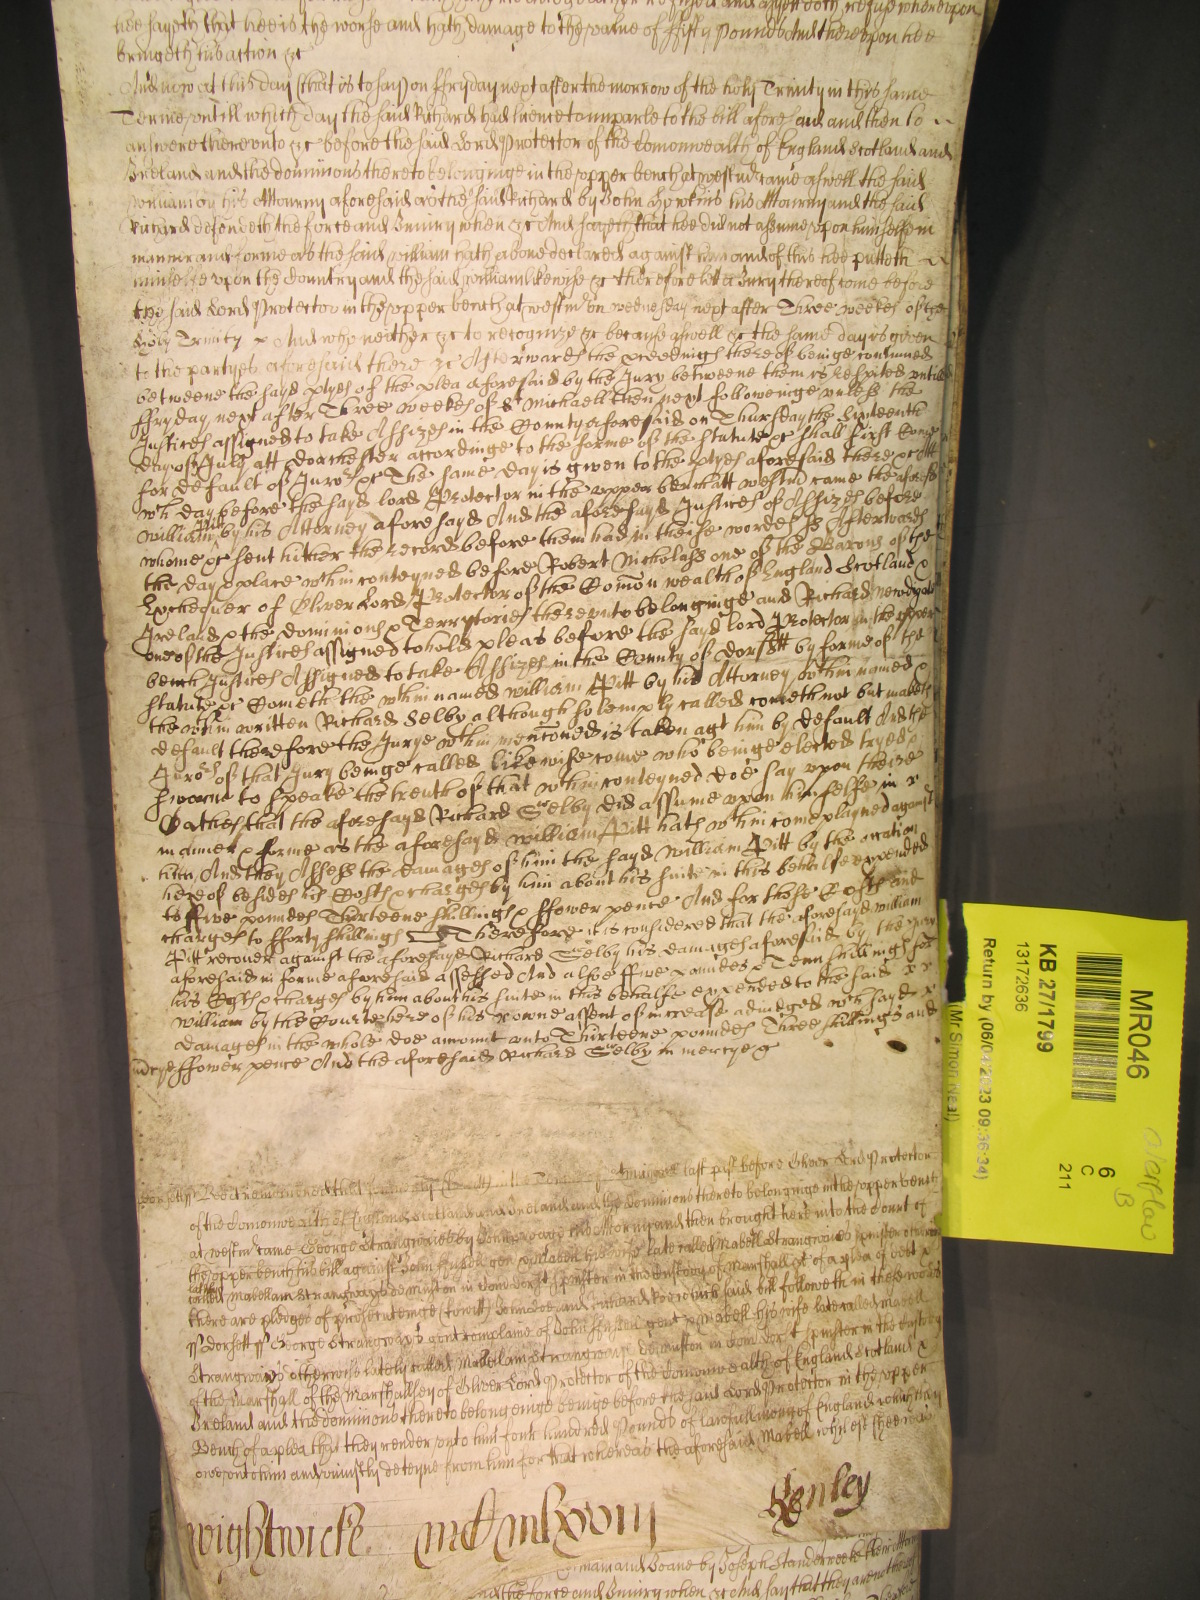 hee sayeth that hee is the worse and hath damage to the value of ffifty pounds And thereupon hee
bringeth his action &c
And now at this day (that is to say) on ffryday next after the morrow of the holy Trinity in this same
Terme untill which day the said Richard had licence to imparle to the bill afore said and then to
answere thereunto &c before the said Lord Protector of the Comonwealth of England Scotland and
Ireland and the dominions thereto belonginge in the upper bench at westm came aswell the said
william by his Attorny aforesaid as the said Richard by John Hopkins his Attorny and the said
Richard defendeth the force and Iniury when &c And sayeth that hee did not assume upon himselfe in
manner and forme as the said william hath above declared against him and of this hee putteth
himselfe upon the Country and the said william likewise &c therefore let a Jury thereof come before
the said Lord Protector in the upper bench at westm on wednesday next after Three weekes of the
holy Trinity And who neither &c to recognize &c because aswell &c the same day is given
to the partyes aforesaid there &c Afterwards the proceedings thereof beinge continued
betweene the sayd ptyes of the plea aforesaid by the Jury betweene them is respited untill
ffryday next after Three weekes of St Michaell then next followeinge unless the
Justices assigned to take Assizes in the County aforesaid on Thursday the Sixteenth
day of July att Dorchester accordinge to the forme of the statute &c shall first Come
for default of Juros &c The same day is given to the ptyes aforesaid there &c att
wch day before the sayd lord Protector in the upper bench att westm came the aforesd
william Pitt by his Attorney aforesayd And the aforesayd Justices of Assizes before
whome &c sent hither the record before them had in theise wordes ss Afterwards
the day & place wthin conteyned before Robert Nicholass one of the Barons of the
Exchequer of Oliver Lord Protector of the Comon wealth of England Scotland &
Ireland & the dominions & Terrytories thereunto belonginge and Richard Newdigate
one of the Justices assigned to hold pleas before the sayd lord Protector in the upper
bench Justices Assigned to take Assizes in the County of Dorsett by forme of the
statute &c Cometh the wthin named william Pitt by his Attorney wthin named &
the wthin written Richard Selby although solemply called cometh not but maketh
default therefore the Jurye wthin menconed is taken agt him by default And the
Juros of that Jury beinge called likewise come who beinge elected tryed &
sworne to speake the truth of that wthin conteyned doe say upon theire
Oathes that the aforesayd Richard Selby did assume upon himselfe in
manner & forme as the aforesayd william Pitt hath wthin complayned against
him And they Assess the damages of him the sayd William Pitt by the occation
hereof besides his Costs & charges by him about his suite in this behalfe expended
to ffive poundes Thirteene shillings & ffower pence And for those Costs and
charges to fforty shillings Therefore it is considered that the aforesayd william
Pitt recover against the aforesayd Richard Selby his damages aforesaid by the Jury
aforesaid in forme aforesaid assessed And alsoe ffive poundes & Tenn shillings for
his Costs & charges by him about his suite in this behalfe expended to the said
William by the Courte here of his owne assent of increase adiudged wch sayd
damages in the whole doe amount unto Thirteene poundes Three shillings and
ffower pence And the aforesaid Richard Selby in mercye &c
Dorsett ss Bee it remembred that last past before Oliver Lord Protector
of the Comonwealth of England Scotland and Ireland and the dominions thereto belonginge in the upper bench
at westm came George Strangwaies by his Attorny and then brought here into the Court of
the upper bench his bill against John ffussell gen & Mabell his wife late called Mabell Strangwaies spinster otherwise
called Mabellam Strangwaies de in Com Dorst spinster in the Custody of Marshall &c of a plea of debt &
there are pledges of prosecuteinge (to witt) John Doe and Richard Roe which said bill followeth in these words
ss Dorsett ss George Strangwaies gent complaine of John ffussell gent & Mabell his wife late called Mabell
Strangwaies otherwise lately called Mabellam Strangwaies de in Com Dorst spinster in the Custody
of the Marshall of the Marshallsey of Oliver Lord Protector of the Comonwealth of England Scotland &
Ireland and the dominions thereto belongeinge beinge before the said Lord Protector in the upper
Bench of a plea that they render unto him four hundred Pounds of lawfull mony of England which they
owe unto him and uniustly deteyne from him for that whereas the aforesaid Mabell whylest shee was
wightwicke Henley
and Joane by Joseph
and the force and Iniury when &c And say that they are not
MR046
6
C
211
KB 27/1799
13172636
Return by (06/04/2023 09:36:34)
Mr Simon Neal)